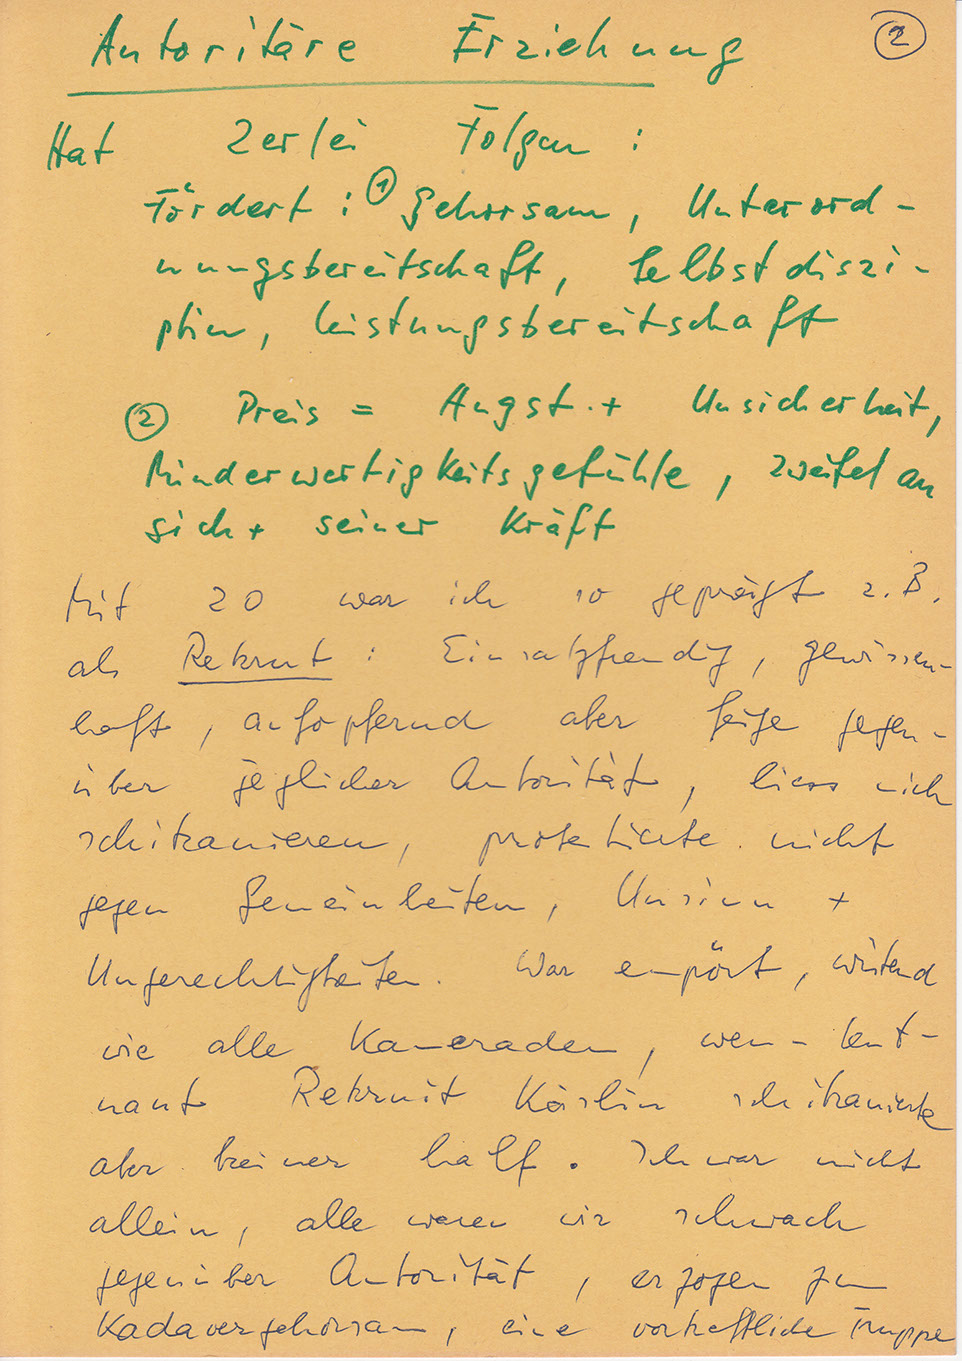 Autoritäre Erziehung ②
Hat 2erlei Folgen :
Fördert : ① Gehorsam, Unterord-
nungsbereitschaft, Selbstdiszi-
plin, Leistungsbereitschaft
② Preis = Angst + Unsicherheit,
Minderwertigkeitsgefühle, Zweifel an
sich + seiner Kraft
Mit 20 war ich so geprägt z.B.
als Rekrut : Einsatzfreudig, gewissen-
haft, aufopfernd aber feige gegen-
über jeglicher Autorität, liess mich
schikanieren, protestierte nicht
gegen Gemeinheiten, Unsinn +
Ungerechtigkeiten. War empört, wütend
wie alle Kameraden, wenn Leut-
nant Rekruit schikanierte
aber keiner half. Ich war nicht
allein, alle waren wir schwach
gegenüber Autorität, erzogen zum
Kadavergehorsam, eine vortreffliche Truppe